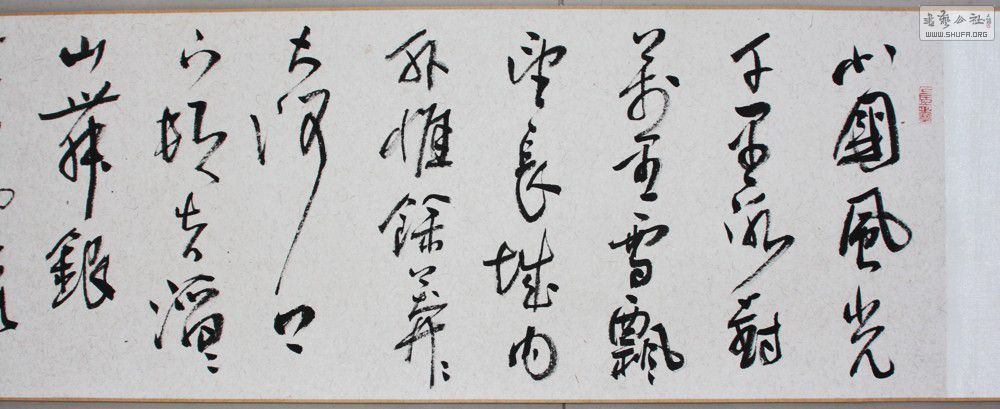 書藝公社
WWW.SHUFA.ORG
北國風光
千里冰封
萬里雪飄
望長城內
外惟餘莽〻
大河上
下頓失滔〻
山舞銀